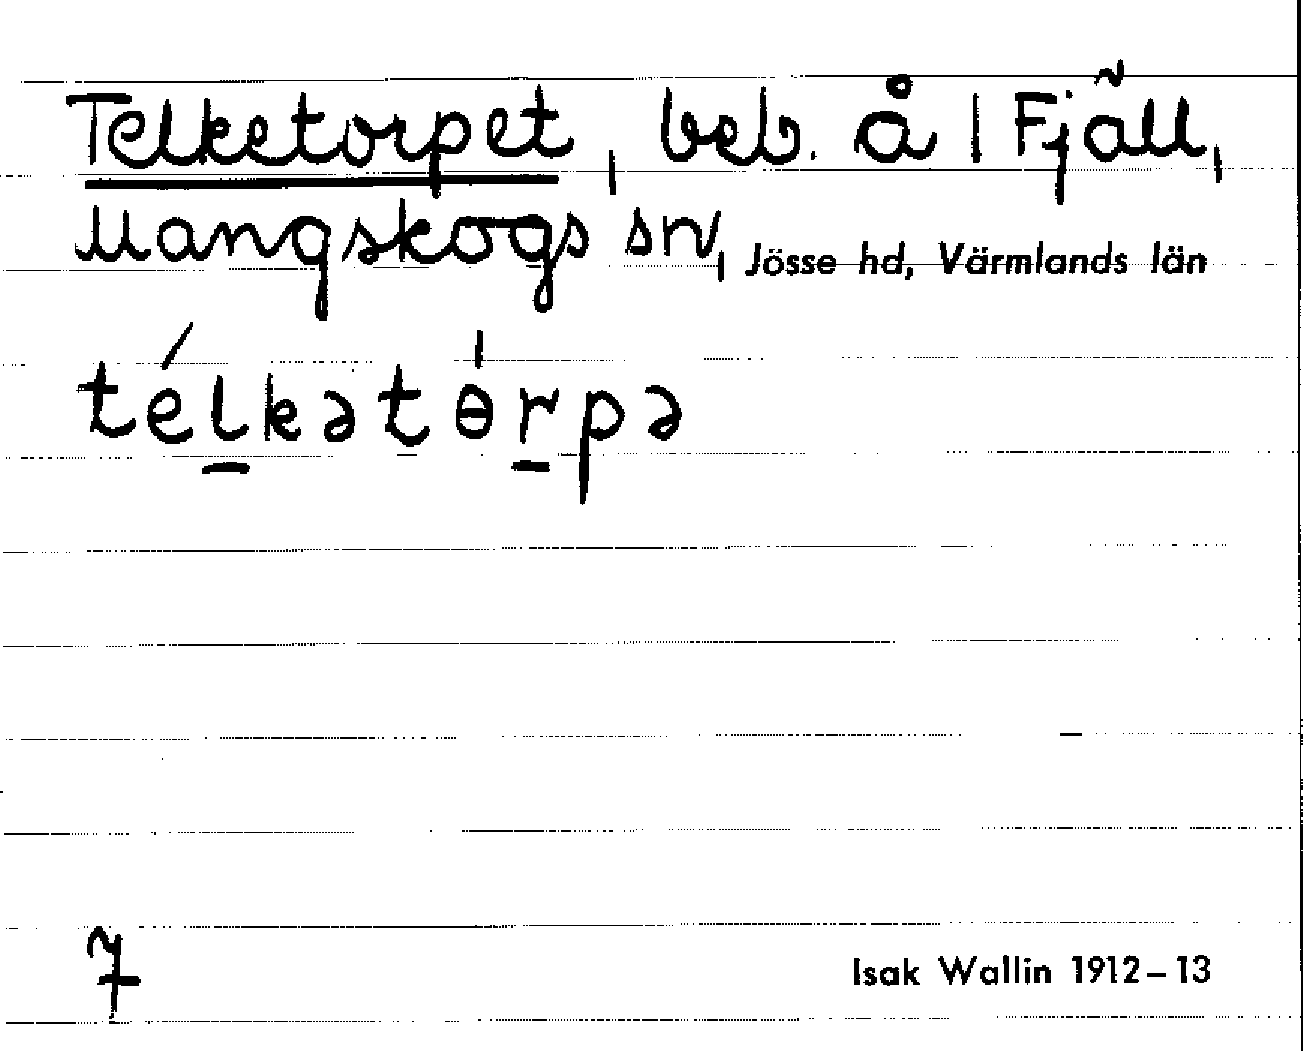 Telketorpet, beb. å 1 Fjäll,
Mangskogs sn, Jösse hd, Värmlands län
té̱lkətɵ́rpə
7
Isak Wallin 1912–13